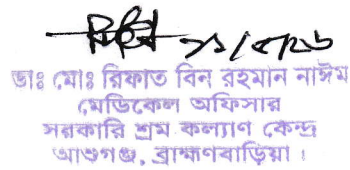 ২১/৫/২৬
ডাঃ মোঃ রিফাত বিন রহমান নাঈম
মেডিকেল অফিসার
সরকারি শ্রম কল্যাণ কেন্দ্র
আশুগঞ্জ, ব্রাহ্মণবাড়িয়া।